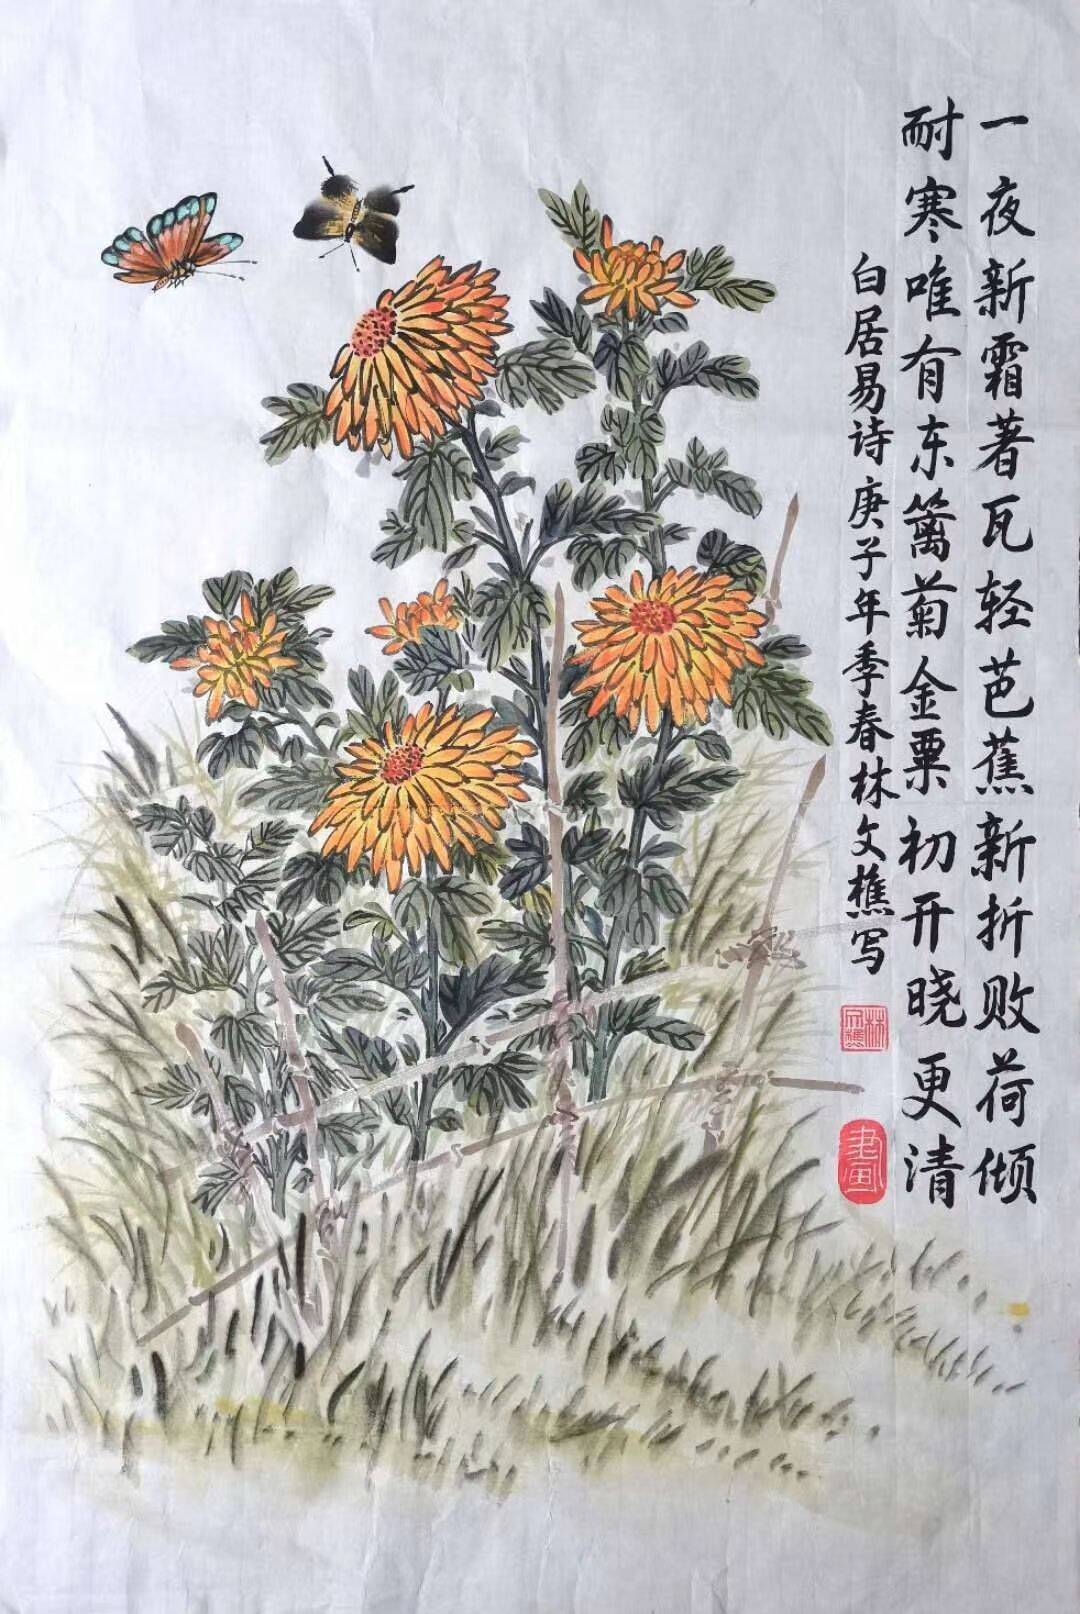 一夜新霜著瓦轻芭蕉新折败荷倾
耐寒唯有东篱菊金粟初开晓更清
白居易诗庚子年季春林文樵写
林文樵
书画